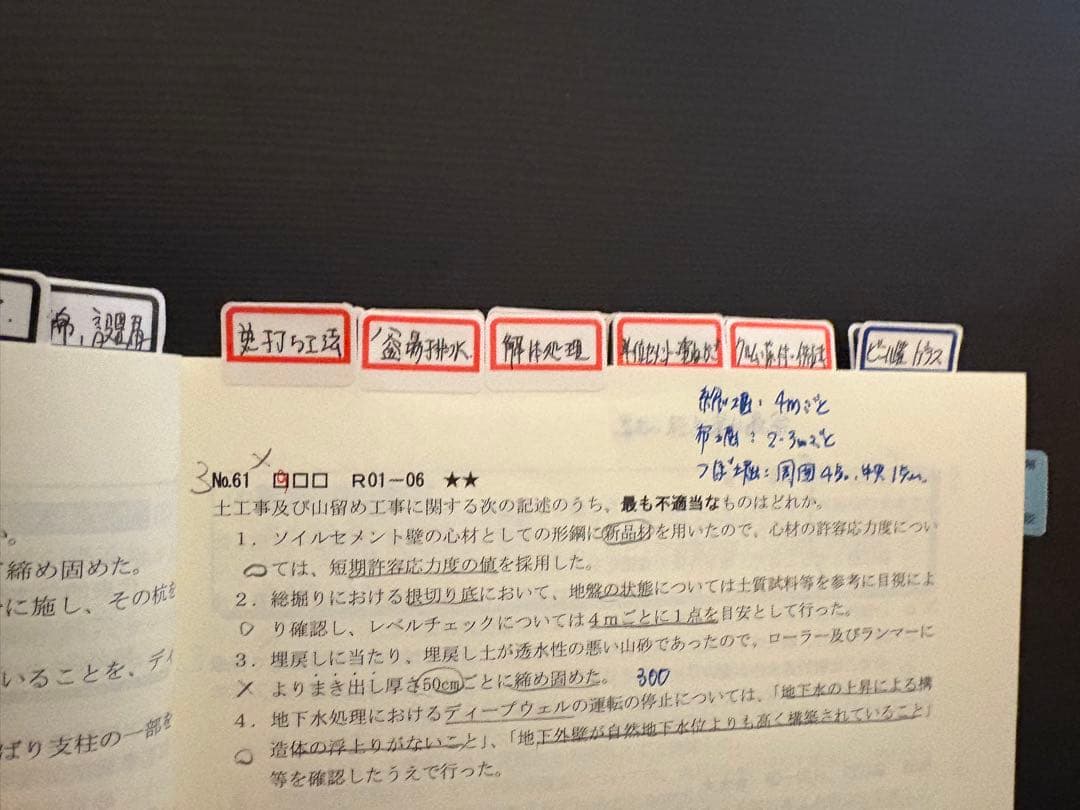 杭打ち工法
釜場排水
解体処理
ビニル壁 ガラス
総堀:4mごと
布堀:2-3mごと
つぼ堀:周囲4点、中央1点
3 No.61 □□□ R01-06 ★★
土工事及び山留め工事に関する次の記述のうち、最も不適当なものはどれか。
1. ソイルセメント壁の心材としての形鋼に新品材を用いたので、心材の許容応力度につい
ては、短期許容応力度の値を採用した。
2. 総掘りにおける根切り底において、地盤の状態については土質試料等を参考に目視によ
り確認し、レベルチェックについては4mごとに1点を目安として行った。
3. 埋戻しに当たり、埋戻し土が透水性の悪い山砂であったので、ローラー及びランマーに
よりまき出し厚さ50cmごとに締め固めた。 300
4. 地下水処理におけるディープウェルの運転の停止については、「地下水の上昇による構
造体の浮上りがないこと」、「地下外壁が自然地下水位よりも高く構築されていること」
等を確認したうえで行った。
締め固めた。
に施し、その杭を
いることを、ディ
ばり支柱の一部を